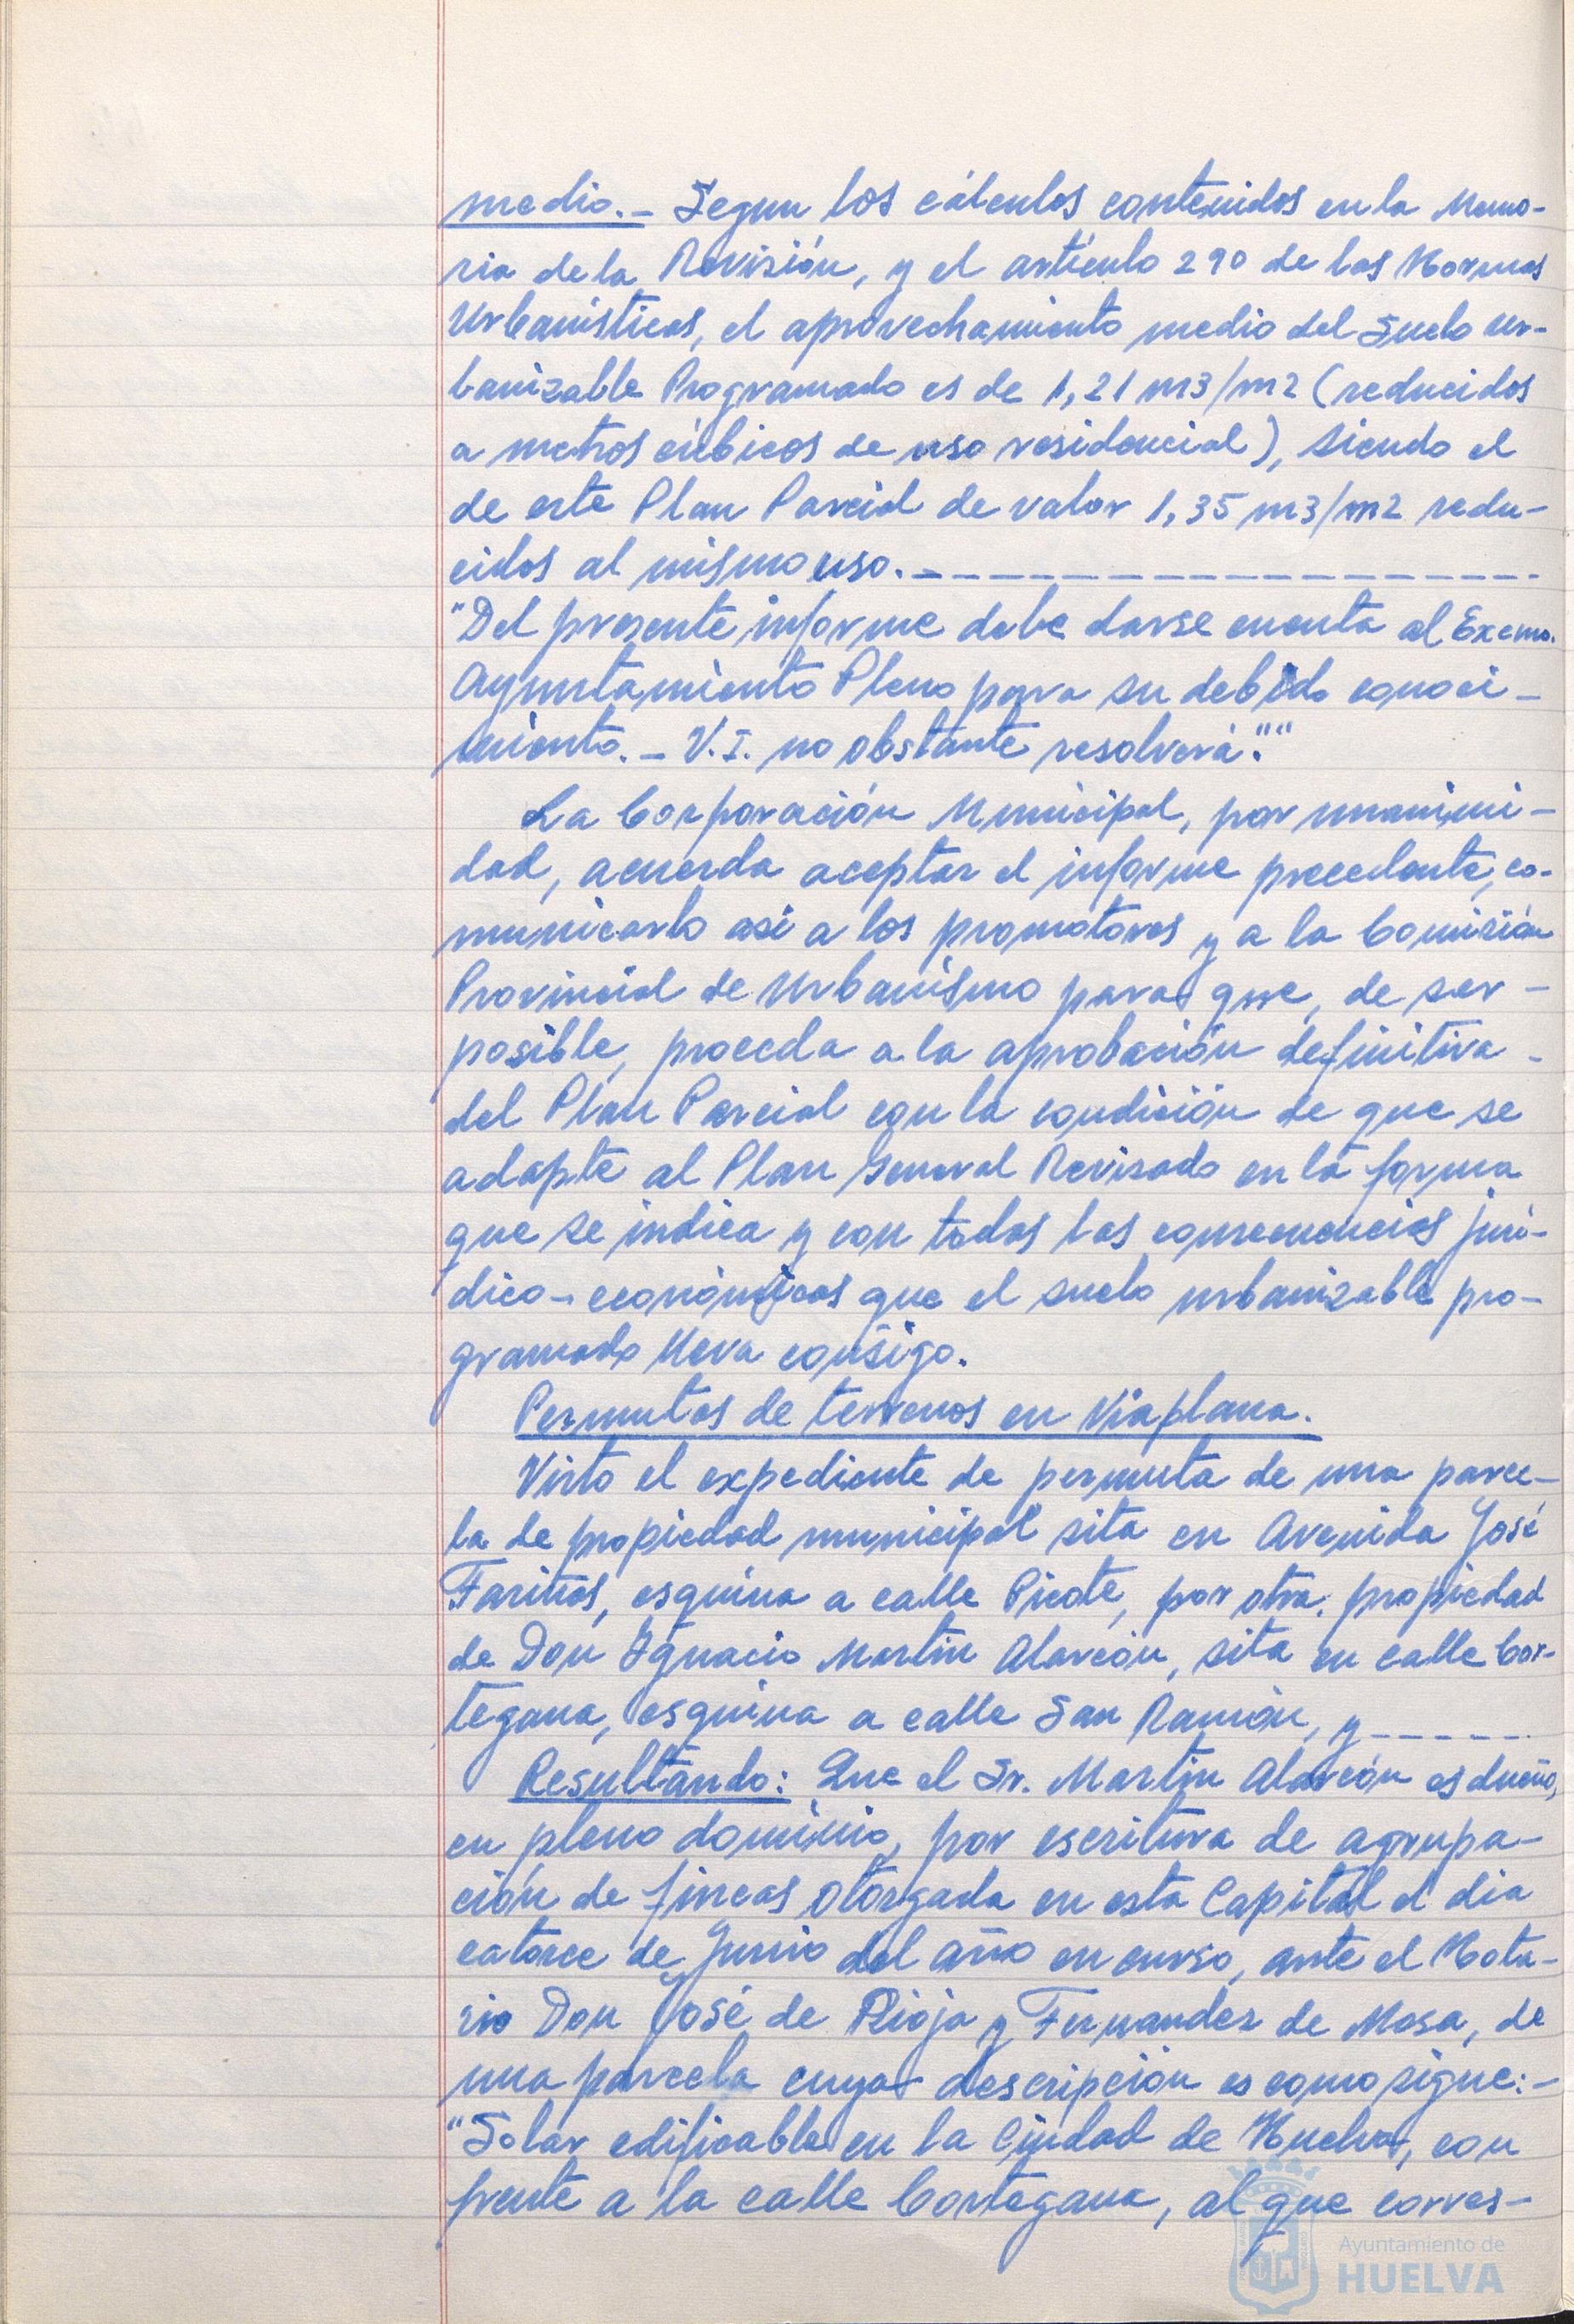 medio.- Segun los cálculos contenidos en la Memo-
ria de la Revisión, y el artículo 290 de las Normas
Urbanísticas, el aprovechamiento medio del Suelo Ur-
banizable Programado es de 1,21 m3/m2 (reducidos
a metros cúbicos de uso residencial), siendo el
de este Plan Parcial de valor 1,35 m3/m2 redu-
cidos al mismo uso.-------------------
"Del presente informe debe darse cuenta al Excmo.
Ayuntamiento Pleno para su debido conoci-
miento.- V.I. no obstante resolverá".""
La Corporación Municipal, por unanimi-
dad, acuerda aceptar el informe precedente, co-
municarlo asi a los promotores y a la Comisión
Provincial de Urbanismo para que, de ser-
posible, proceda a la aprobación definitiva-
del Plan Parcial con la condición de que se
adapte al Plan General Revisado en la forma
que se indica y con todas las consecuencias jurí-
dico-económicas que el suelo urbanizable pro-
gramado lleva consigo.
Permutas de terrenos en Viaplana.
Visto el expediente de permuta de una parce-
la de propiedad municipal sita en Avenida José
Fariñas, esquina a calle Picote, por otra propiedad
de Don Ignacio Martín Alarcón, sita en calle Cor-
tegana, esquina a calle San Ramón, y------
Resultando: Que el Sr. Martín Alarcón es dueño,
en pleno dominio, por escritura de agrupa-
ción de fincas otorgada en esta Capital el dia
catorce de Junio del año en curso, ante el Nota-
rio Don José de Rioja y Fernandez de Mesa, de
una parcela cuya descripción es como sigue:-
"Solar edificable en la Ciudad de Huelva, con
frente a la calle Cortegana, al que corres-
Ayuntamiento de
HUELVA